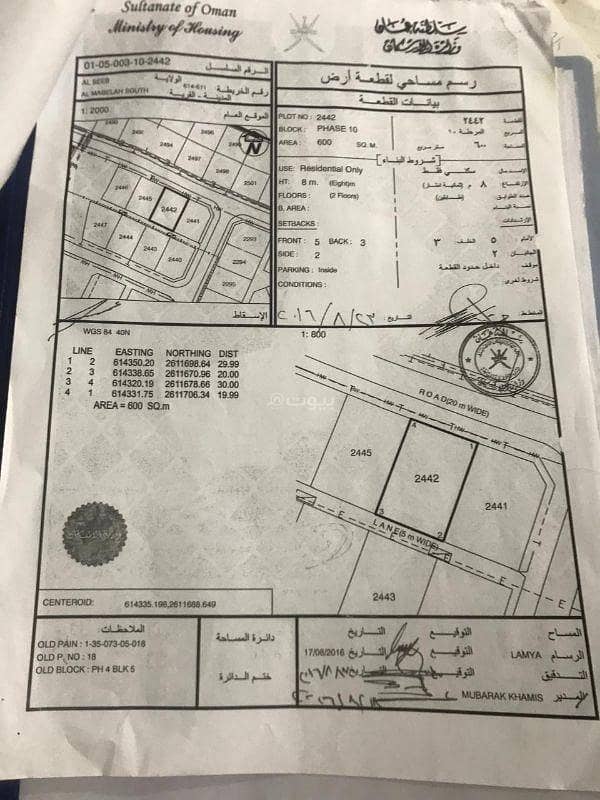 Sultanate of Oman
Ministry of Housing
سلطنة عمان
وزارة الإسكان
01-05-003-10-2442
الرقم المسلسل
AL SEEB
الولاية
AL MABELAH SOUTH
المدينة - القرية
614-611
رقم الخريطة
1: 2000
الموقع العام
N
2490
2495
2494
2497
2498
2501
2446
2445
2442
2441
2447
2444
2443
2440
2293
2294
2295
الإسقاط
رسم مساحي لقطعة أرض
بيانات القطعة
PLOT NO : 2442
٢٤٤٢
القطعة
BLOCK: PHASE 10
المرحلة ١٠
المربع
AREA: 600 SQ. M.
٦٠٠ متر مربع
المساحة
شروط البناء
USE: Residential Only
سكني فقط
HT: 8 m. (Eight)m
٨ م (ثمانية امتار)
FLOORS: (2 Floors)
(طابقين)
عدد الطوابق
B. AREA:
SETBACKS:
FRONT: 5 BACK: 3
٣ الخلف ٥ الأمام
SIDE: 2
٢
PARKING: Inside
داخل حدود القطعة
موقف
CONDITIONS:
شروط أخرى
٢٠١٦/٨/٢٣
التاريخ
المخطط
WGS 84 40N
1: 800
LINE EASTING NORTHING DIST
1 2 614350.20 2611698.64 29.99
2 3 614338.65 2611670.96 20.00
3 4 614320.19 2611678.66 30.00
4 1 614331.75 2611706.34 19.99
AREA = 600 SQ.m
بيوت
ROAD(20 m WIDE)
2445
4
1
2442
2441
3
2
LANE(5 m WIDE)
2443
CENTEROID: 614335.198,2611688.649
الملاحظات
OLD PAIN : 1-35-073-05-018
OLD P. NO : 18
OLD BLOCK : PH 4 BLK 5
دائرة المساحة
ختم الدائرة
التاريخ
التوقيع
المساح
17/08/2016
التاريخ
التوقيع
LAMYA
الرسام
التاريخ
التوقيع
التدقيق
التوقيع
MUBARAK KHAMIS
المدير